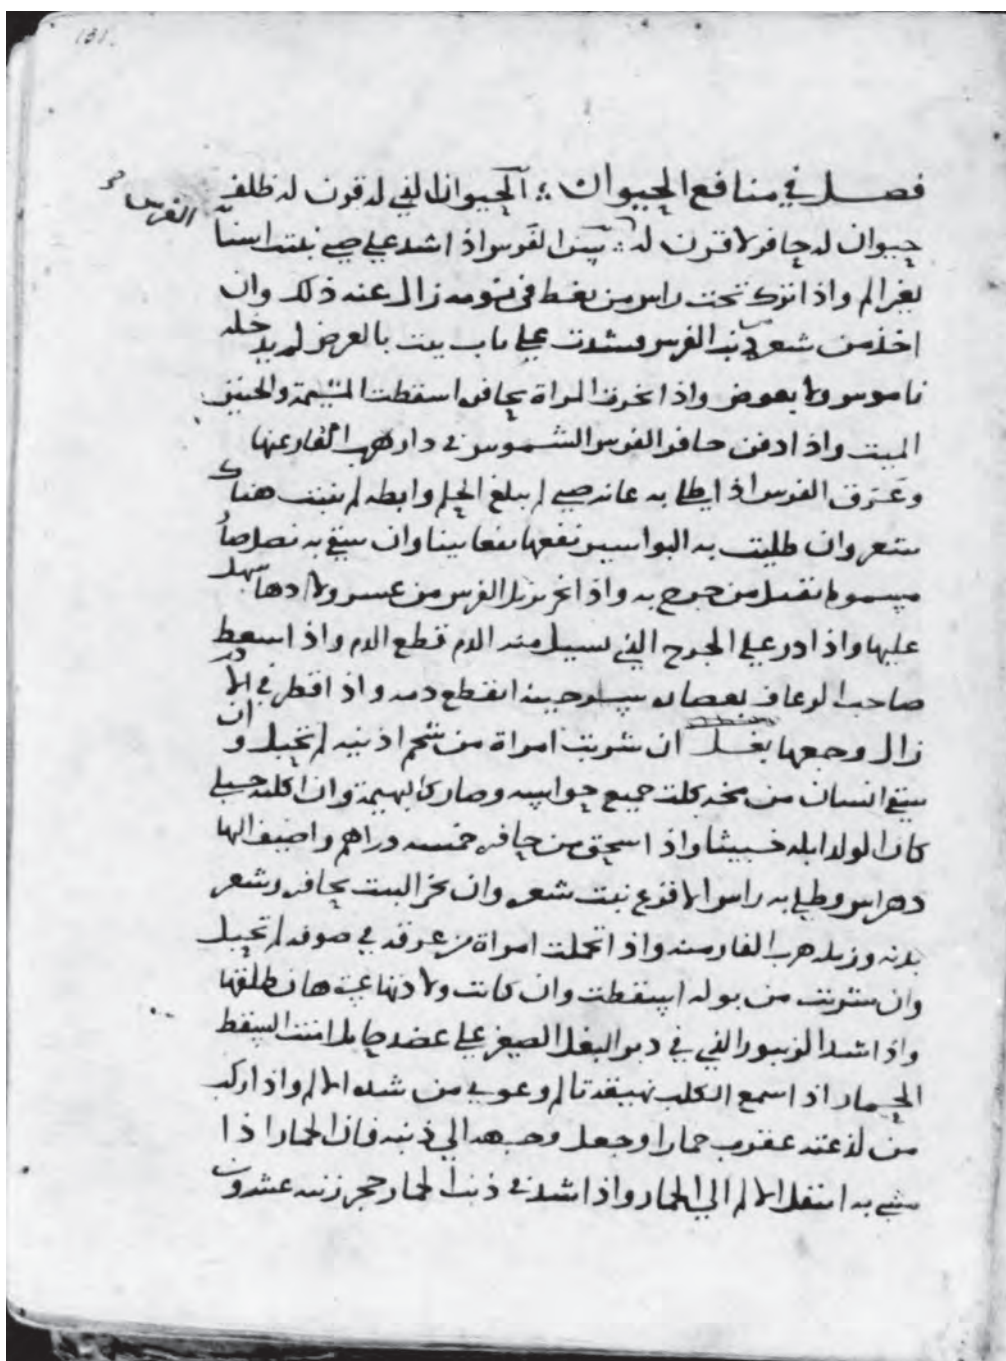 131.
فصل في منافع الحيوان الحيوان الذي له قرون له ظلف
الفرس
حيوان له حافر لا قرن له سن الفرس اذا شد علي صبي نبتت اسنانه
بغير الم واذا ترك تحت راس من يغط في نومه زال عنه ذلك وان
اخذ من شعر ذنب الفرس وشدت علي باب بيت بالعرض لم يدخله
ناموس ولا بعوض واذا بخرت المراة بحافره اسقطت المشيمة والجنين
الميت واذا دفن حافر الفرس الشموس في دار هرب الفار عنها
وعرق الفرس اذا طلي به عانة صبي لم يبلغ الحلم وابطه لم ينبت هناك
شعر وان طليت به البواسير نفعها نفعا بينا وان سقي به نصل صار
مسموما نقتل من جرح به واذا بخر بزبل الفرس من عسر ولادها سهل
عليها واذا ذر علي الجرح الذي يسيل منه الدم قطع الدم واذا اسعط
صاحب الرعاف بعصارة حينه انقطع دمه واذا قطر في الاذن
زال وجعها بغل ان شربت امراة من شحم اذنيه لم تحبل وان
سقي انسان من مخه بلت جميع حواسه وصار كالبهيمة وان اكلته حبلي
كان الولد ابله خبيثا واذا سحق من حافره خمسة دراهم واضيف اليها
دهن اس وطلي به راس الاقرع نبت شعره وان بخر البيت بحافره وشعر
بدنه وزبله هرب الفار منه واذا تحملت امراة من عرقه في صوفه لم تحبل
وان شربت من بوله اسقطت وان كانت ولادتها عسرة هان طلقها
واذا شد الزنبور الذي في دبر البغل الصغير علي عضد حامل امنت السقط
الحمار اذا سمع الكلب نهيقه تالم وعوي من شدة الالم واذا ركب
من لدغته عقرب حمارا وجعل وجهه الي ذنبه فان الحمار اذا
مشي به انتقل الالم الي الحمار واذا شد في ذنب الحمار حجر زنته عشرون